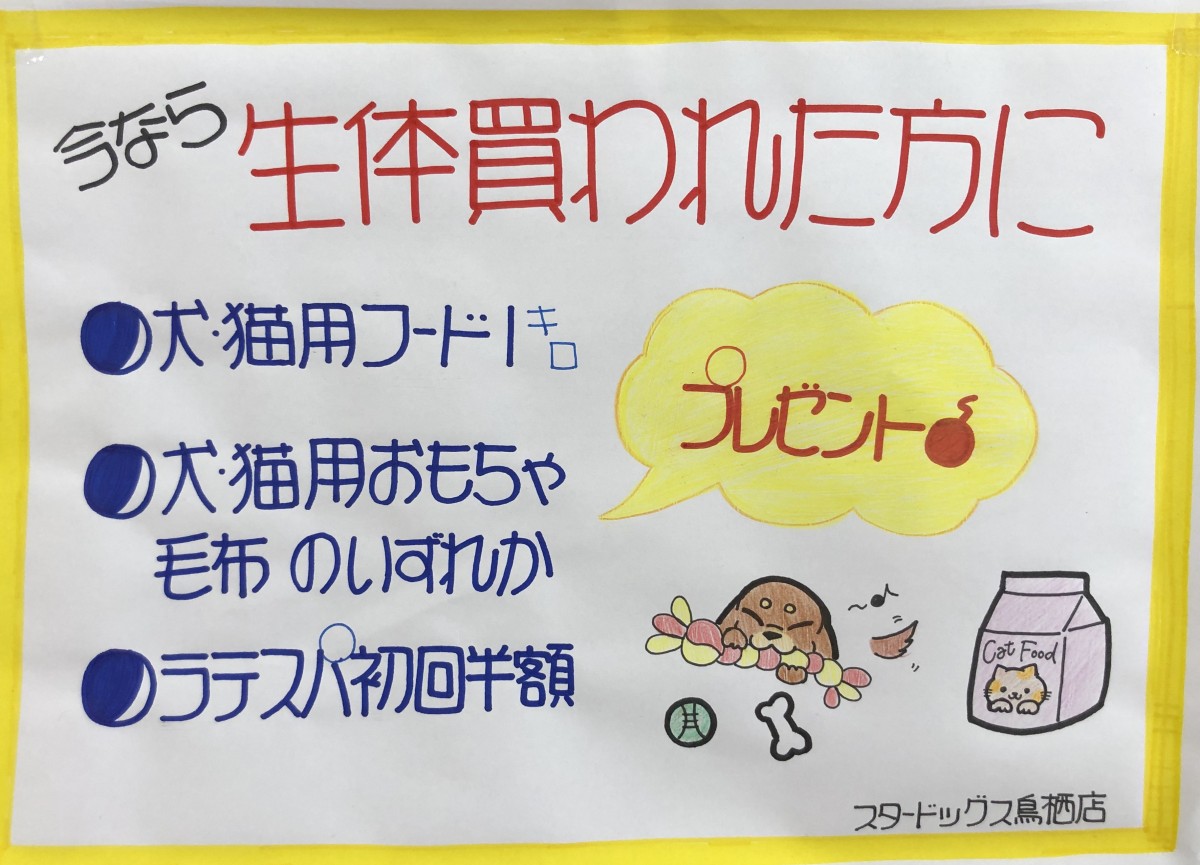 今なら 生体買われた方に
●犬・猫用フード1キロ
●犬・猫用おもちゃ
毛布 のいずれか
●ラテスパ初回半額
プレゼント
Cat Food
スタードッグス鳥栖店